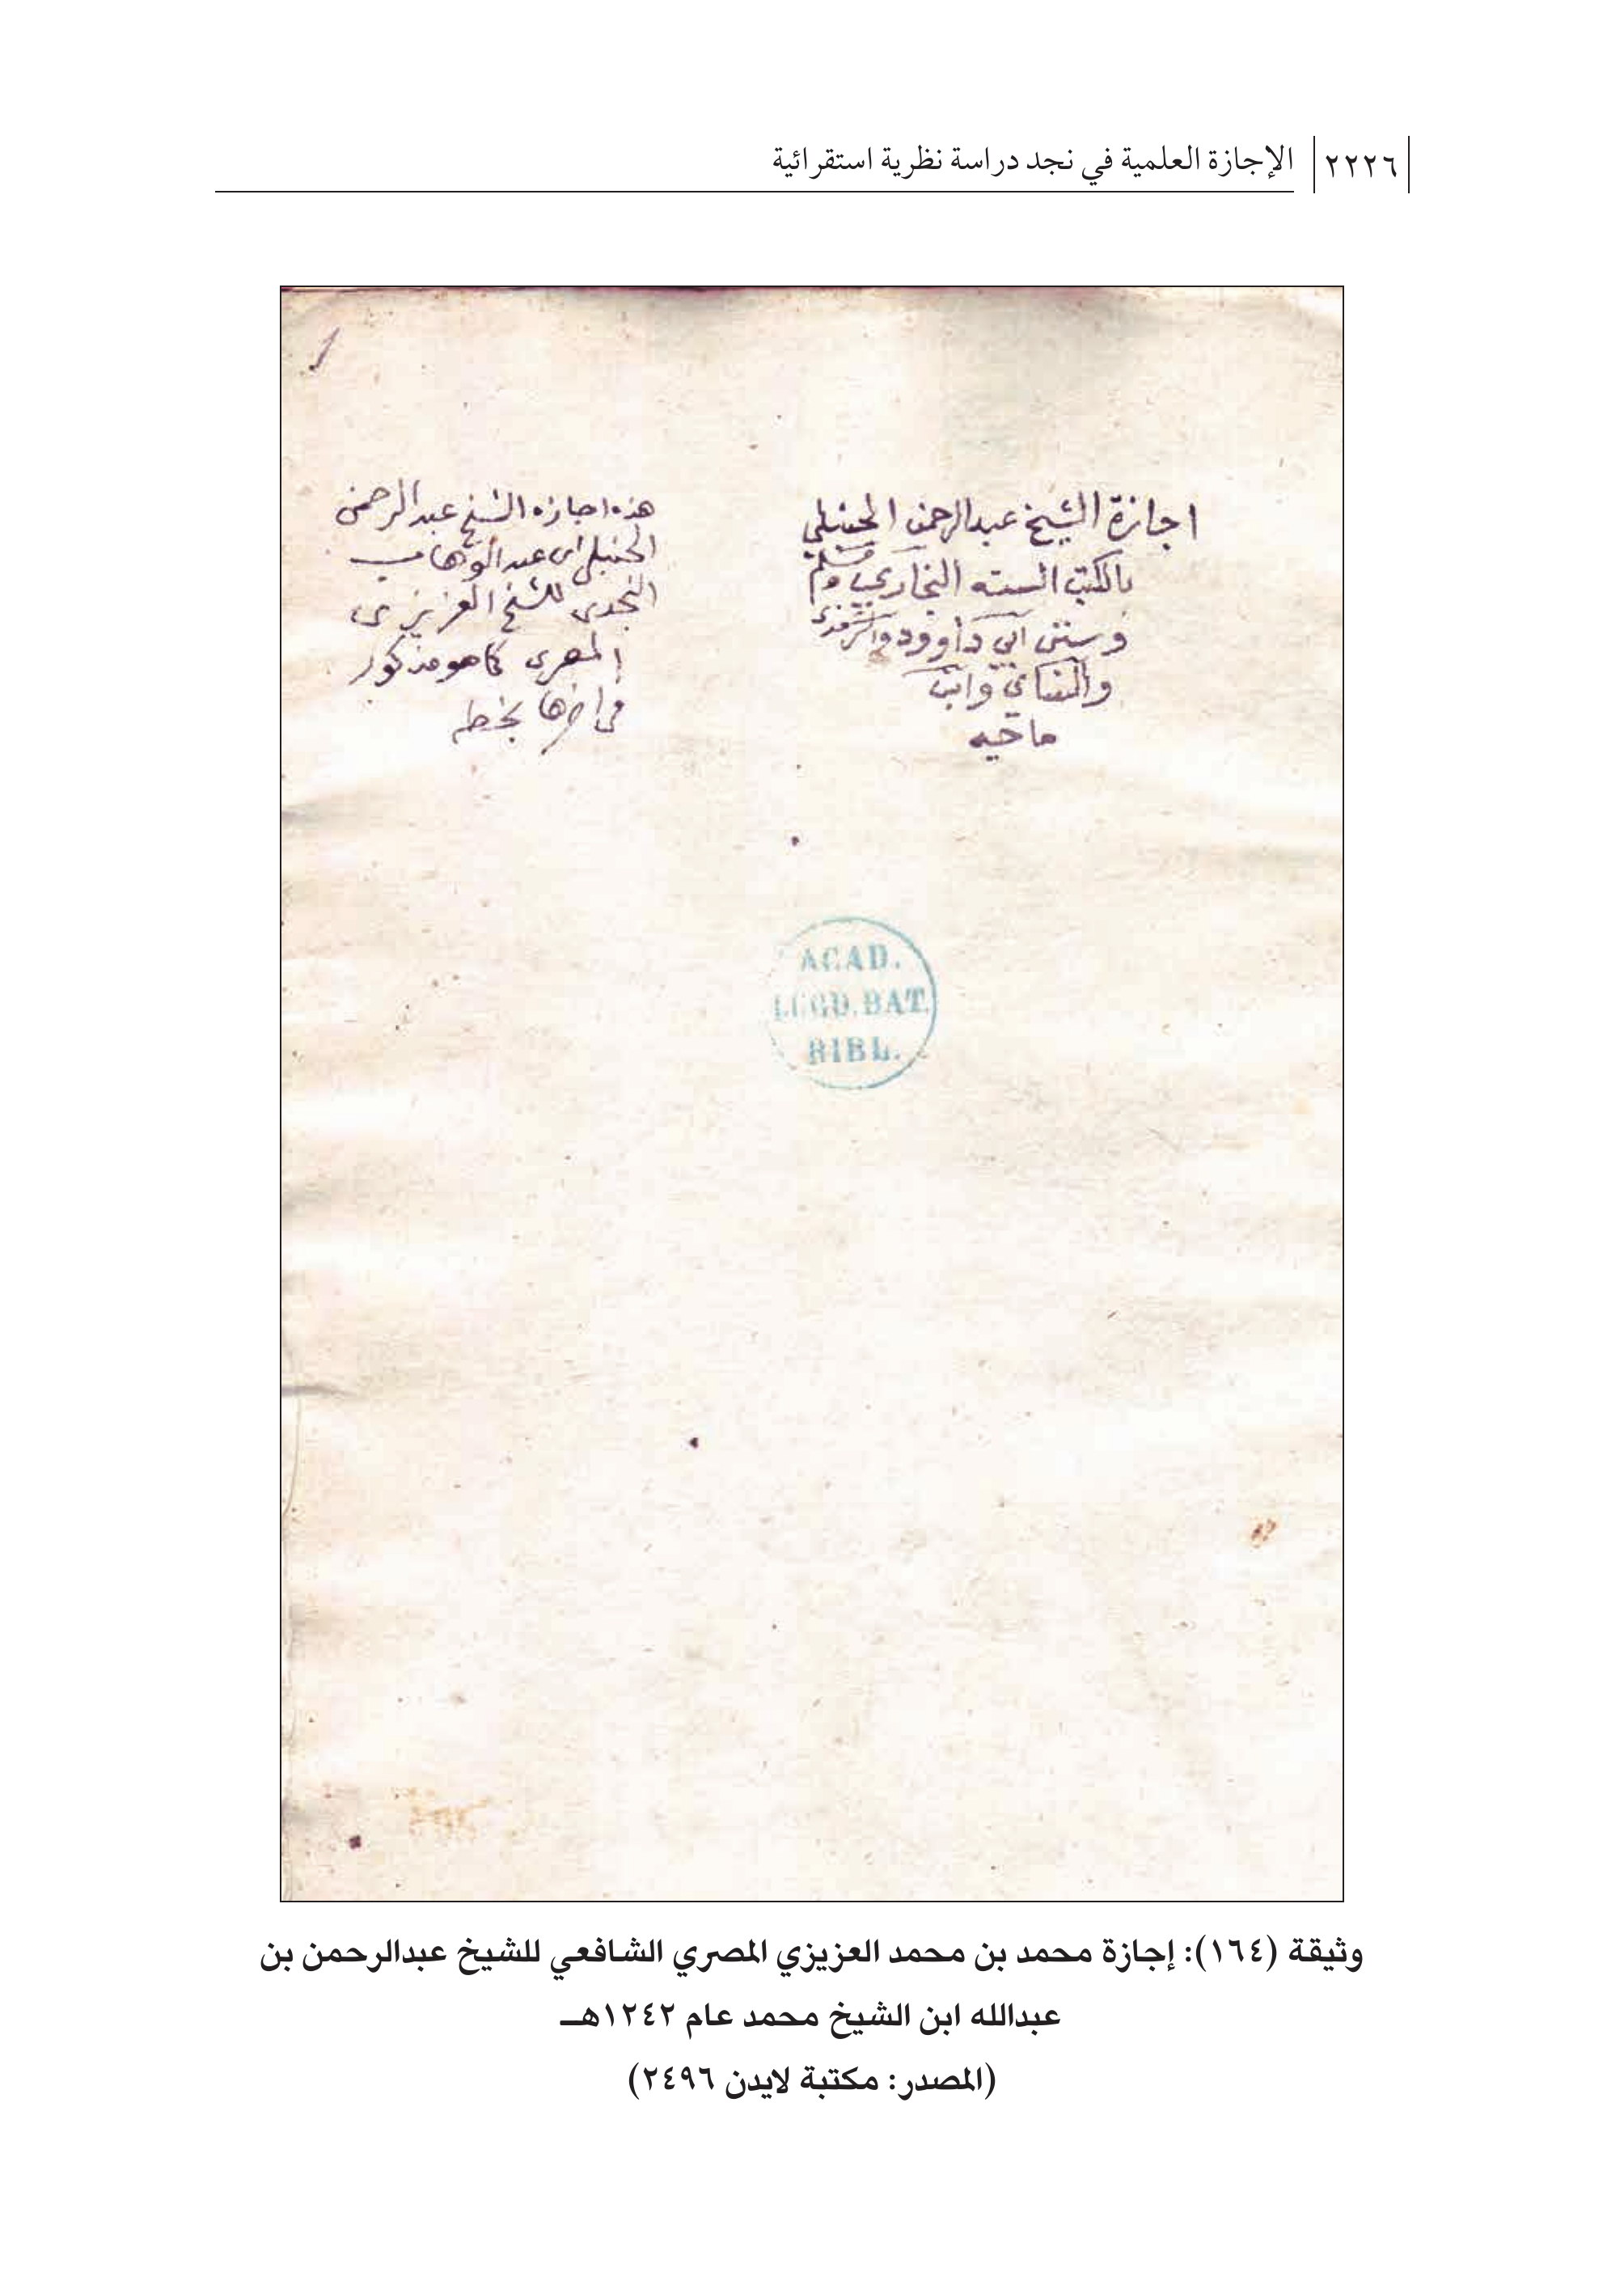 ٢٢٢٦ الإجازة العلمية في نجد دراسة نظرية استقرائية
1
اجازة الشيخ عبدالرحمن الحنبلي
بالكتب السته البخاري ومسلم
وسنن ابي داوود والترمذي
والنساي وابن
ماجه
هذه اجازه الشيخ عبدالرحمن
الحنبلي عبد الوهاب
النجدى للشيخ العزيزى
المصرى كما هو مذكور
فى اخرها بخطه
ACAD.
LUGD. BAT.
BIBL.
وثيقة (١٦٤): إجازة محمد بن محمد العزيزي المصري الشافعي للشيخ عبدالرحمن بن
عبدالله ابن الشيخ محمد عام ١٢٤٢هـ
(المصدر: مكتبة لايدن ٢٤٩٦)